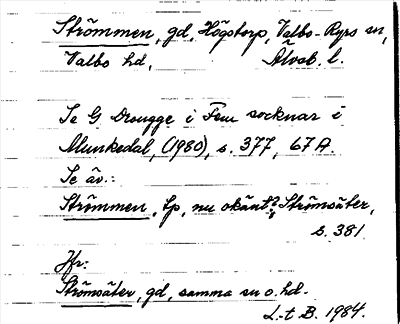 Strömmen, gd, Högstorp, Valbo-Ryrs sn,
Valbo hd, Älvsb. l.
Se G Drougge i Fem socknar i
Munkedal, (1980), s. 377, 67A.
Se äv.:
Strömmen, tp, nu okänt?, Strömsäter,
s. 381.
Jfr:
Strömsäter, gd, samma sn o. hd.
L-t B. 1984.